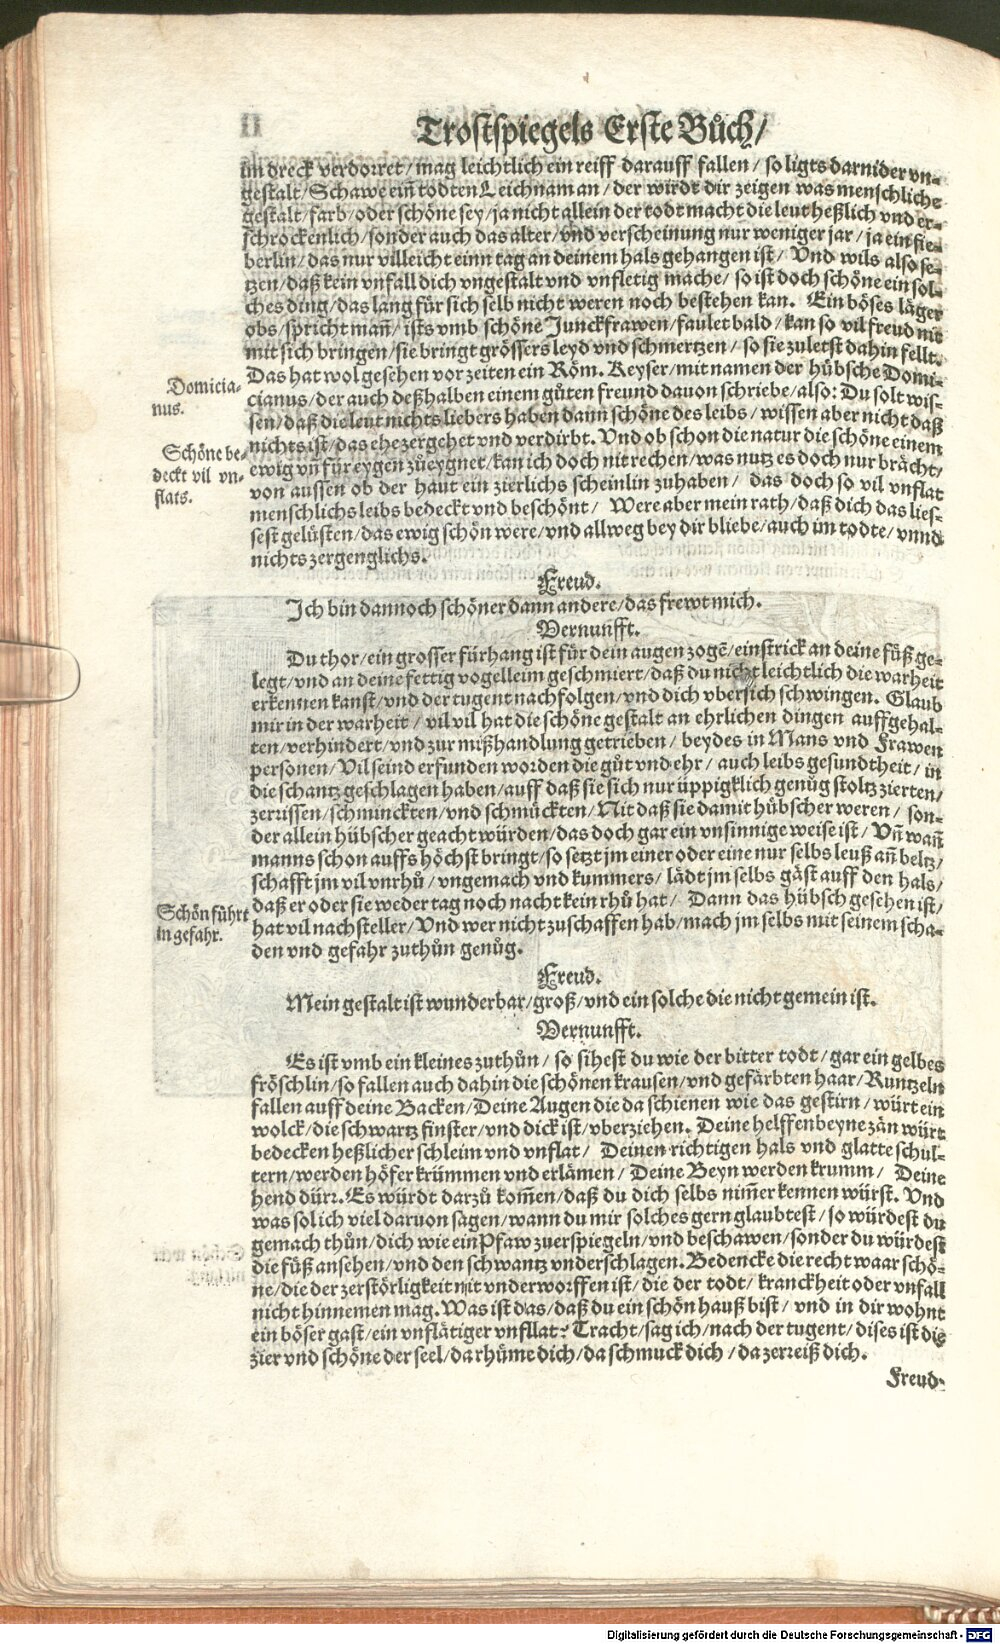 Trostspiegels Erste Bůch/
im dreck verdorret/ mag leichtlich ein reiff darauff fallen/ so ligts darnider vn-
gestalt/ Schawe einñ todten Leichnam an/ der wirdt dir zeigen was menschliche
gestalt/ farb/ oder schöne sey/ ja nicht allein der todt macht die leut heßlich vnd er-
schrockenlich/ sonder auch das alter/ vnd verscheinung nur weniger jar/ ja ein fie-
berlin/ das nur villeicht einn tag an deinem hals gehangen ist/ Vnd wils also se-
tzen/ daß kein vnfall dich vngestalt vnd vnfletig mache/ so ist doch schöne ein sol-
ches ding/ das lang für sich selb nicht weren noch bestehen kan. Ein böses läger
obs/ spricht mañ/ ists vmb schöne Junckfrawen/ faulet bald/ kan so vil freud nit
mit sich bringen/ sie bringt grössers leyd vnd schmertzen/ so sie zuletst dahin fellt.
Das hat wol gesehen vor zeiten ein Röm. Keyser/ mit namen der hübsche Domi-
Domicia-
nus.
cianus/ der auch deßhalben einem gůten freund dauon schriebe/ also: Du solt wis-
sen/ daß die leut nichts liebers haben dann schöne des leibs/ wissen aber nicht daß
nichts ist/ das ehe zergehet vnd verdirbt. Vnd ob schon die natur die schöne einem
Schöne be-
deckt vil vn-
flats.
ewig vñ für eygen zůeygnet/ kan ich doch nit rechen/ was nutz es doch nur brächt/
von aussen ob der haut ein zierlichs scheinlin zuhaben/ das doch so vil vnflat
menschlichs leibs bedeckt vnd beschönt/ Were aber mein rath/ daß dich das lies-
sest gelüsten/ das ewig schön were/ vnd allweg bey dir bliebe/ auch im todte/ vnnd
nichts zergenglichs.
Freud.
Ich bin dannoch schöner dann andere/ das frewt mich.
Vernunfft.
Du thor/ ein grosser fürhang ist für dein augen zogẽ/ ein strick an deine füß ge-
legt/ vnd an deine fettig vogelleim geschmiert/ daß du nicht leichtlich die warheit
erkennen kanst/ vnd der tugent nachfolgen/ vnd dich vbersich schwingen. Glaub
mir in der warheit/ vil vil hat die schöne gestalt an ehrlichen dingen auffgehal-
ten/ verhindert/ vnd zur mißhandlung getrieben/ beydes in Mans vnd Frawen
personen/ Vil seind erfunden worden die gůt vnd ehr/ auch leibs gesundtheit/ in
die schantz geschlagen haben/ auff daß sie sich nur üppigklich genůg stoltz zierten/
zerrissen/ schminckten/ vnd schmückten/ Nit daß sie damit hübscher weren/ son-
der allein hübscher geacht würden/ das doch gar ein vnsinnige weise ist/ Vñ wañ
manns schon auffs höchst bringt/ so setzt jm einer oder eine nur selbs leuß añ beltz/
schafft jm vil vnrhů/ vngemach vnd kummers/ lädt jm selbs gäst auff den hals/
Schön führt
in gefahr.
daß er oder sie weder tag noch nacht kein rhů hat/ Dann das hübsch gesehen ist/
hat vil nachsteller/ Vnd wer nicht zuschaffen hab/ mach jm selbs mit seinem scha-
den vnd gefahr zuthůn genůg.
Freud.
Mein gestalt ist wunderbar/ groß/ vnd ein solche die nicht gemein ist.
Vernunfft.
Es ist vmb ein kleines zuthůn/ so sihest du wie der bitter todt/ gar ein gelbes
fröschlin/ so fallen auch dahin die schönen krausen/ vnd gefärbten haar/ Runtzeln
fallen auff deine Backen/ Deine Augen die da schienen wie das gestirn/ würt ein
wolck/ die schwartz finster/ vnd dick ist/ vberziehen. Deine helffenbeyne zän würt
bedecken heßlicher schleim vnd vnflat/ Deinen richtigen hals vnd glatte schul-
tern/ werden höfer krümmen vnd erlämen/ Deine Beyn werden krumm/ Deine
hend dürr. Es würdt darzů kom̃en/ daß du dich selbs nim̃er kennen würst. Vnd
was sol ich viel daruon sagen/ wann du mir solches gern glaubtest/ so würdest du
gemach thůn/ dich wie ein Pfaw zuerspiegeln/ vnd beschawen/ sonder du würdest
die füß ansehen/ vnd den schwantz vnderschlagen. Bedencke die recht waar schö-
ne/ die der zerstörligkeit nit vnderworffen ist/ die der todt/ kranckheit oder vnfall
nicht hinnemen mag. Was ist das/ daß du ein schön hauß bist/ vnd in dir wohnt
ein böser gast/ ein vnflätiger vnfllat? Tracht/ sag ich/ nach der tugent/ dises ist die
zier vnd schöne der seel/ da rhüme dich/ da schmuck dich/ da zerreiß dich.
Freud.
Digitalisierung gefördert durch die Deutsche Forschungsgemeinschaft - DFG